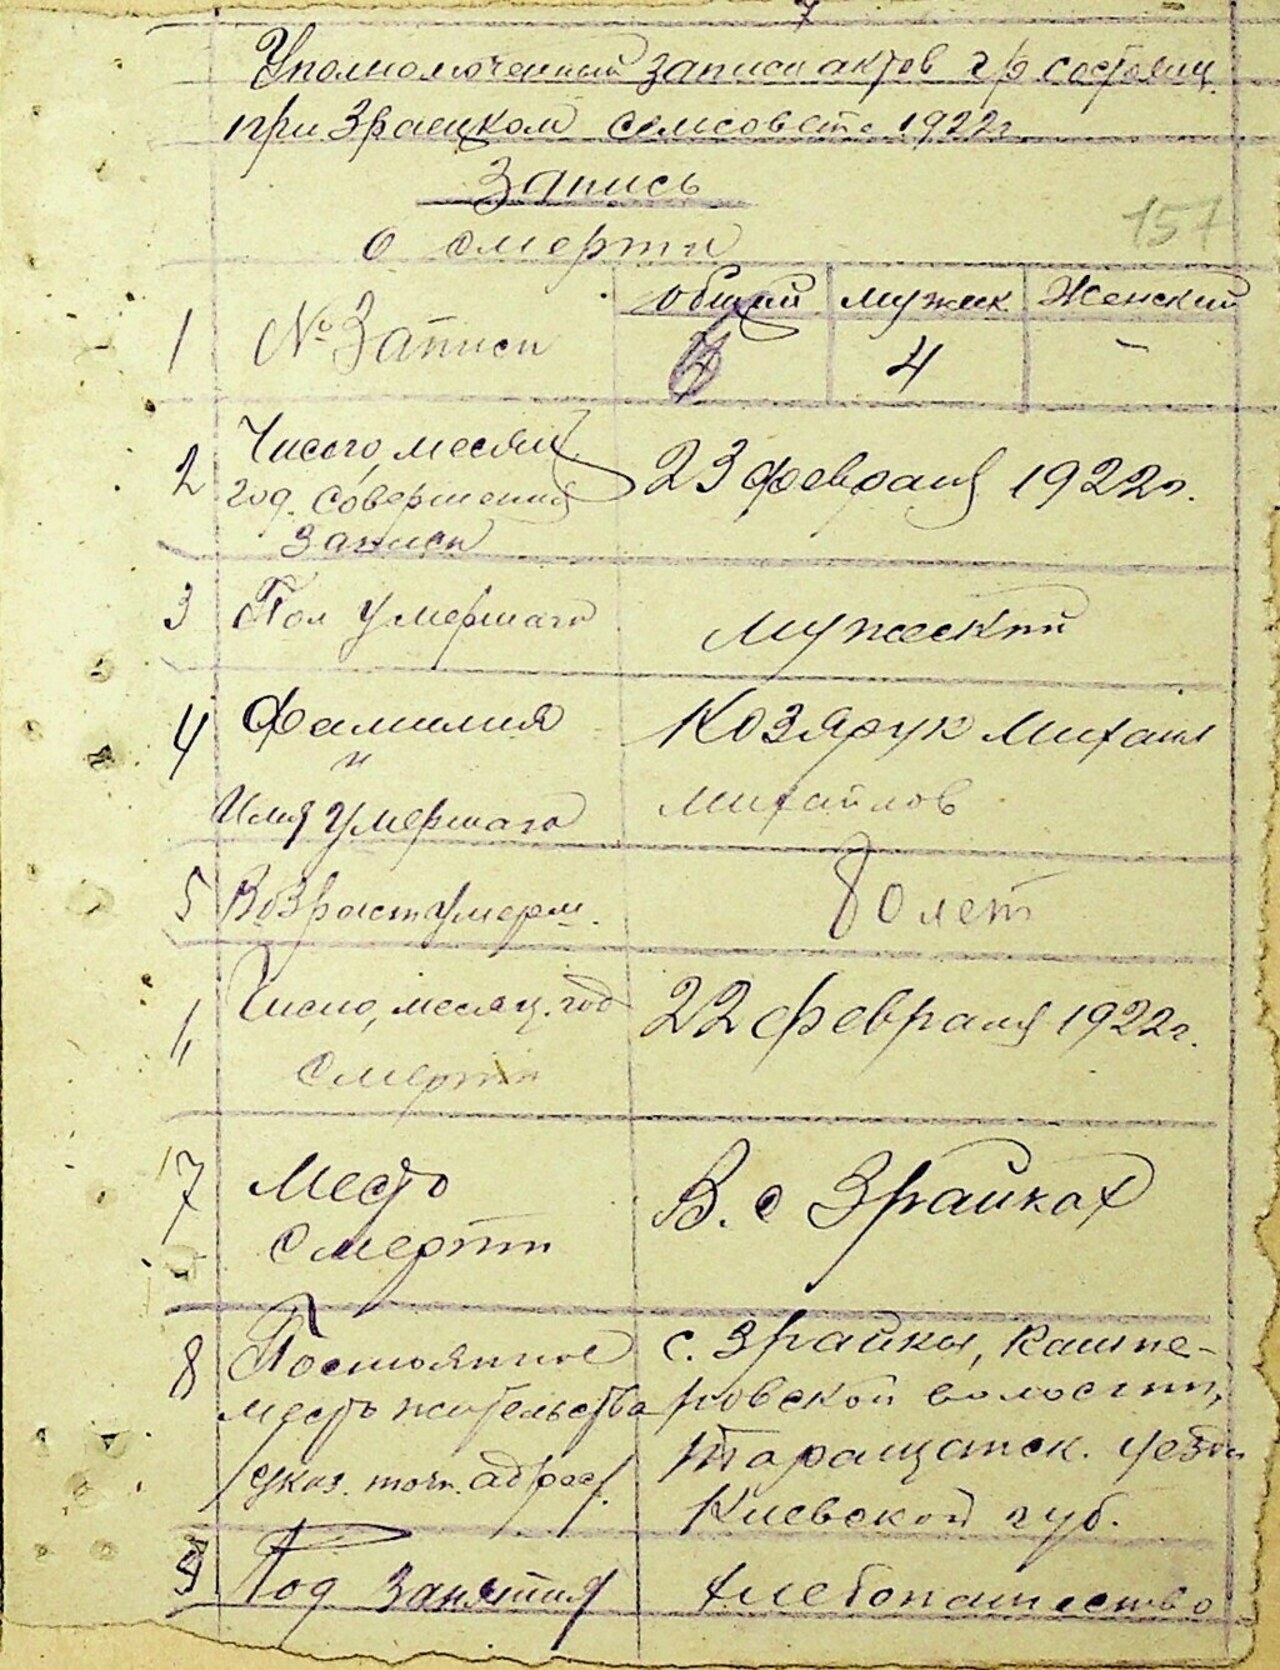 7
Уполномоченный записи актов гр состоян.
при Зраецком сельсовете 1922г
Запись
о смерти
157
общий мужск. Женский
1 № Записи 4 -
2 Число, месяц,
год. совершения
записи
23 февраля 1922г.
3 Пол умершаго мужеский
4 Фамилия
и
Имя умершаго
Козярук Михаил
Михайлов
5 Возраст умерш. 80 лет
Число, месяц. год
смерти
22 февраля 1922г.
7 Место
смерти
В. с Зрайках
8 Постоянное
место жительства
/указ. точн. адрес/.
с. Зрайки, Кашпе-
ровской волости,
Таращанск. уезда
Киевской губ.
9 Род занятия хлебопашество